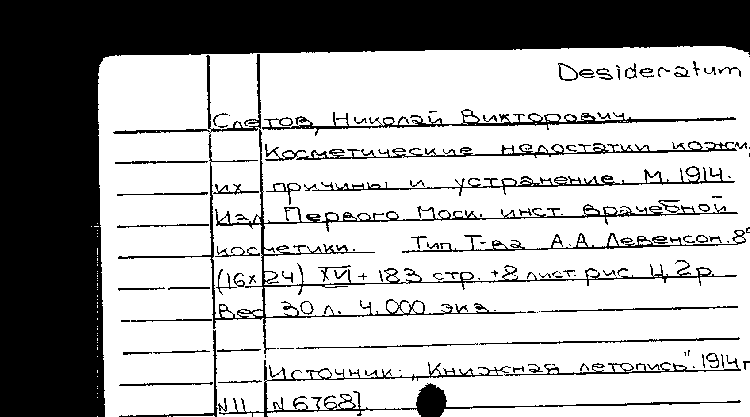 Desideratum
Слетов, Николай Викторович.
Косметические недостатки кожи,
их причины и устранение. М. 1914.
Изд. Первого Моск. инст. врачебной
косметики. Тип. Т-ва А.А. Левенсон. 8°
(16x24) XVI + 183 стр. +8 лист. рис. Ц. 2р.
Вес 30 л. 4.000 экз.
Источник: „Книжная летопись". 1914 г.
N 11, N 6768]